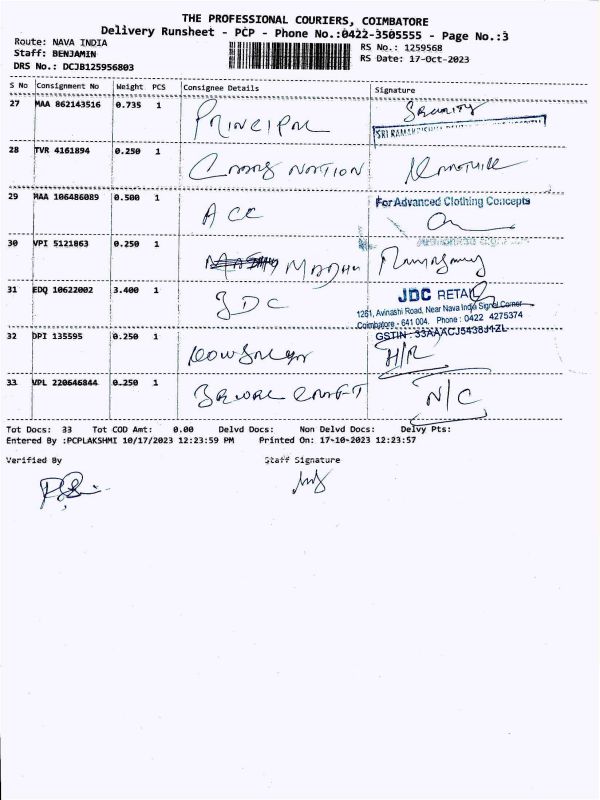 THE PROFESSIONAL COURIERS, COIMBATORE
Delivery Runsheet - PCP - Phone No.:0422-3505555 - Page No.:3
Route: NAVA INDIA
Staff: BENJAMIN
DRS No.: DCJB125956803
RS No.: 1259568
RS Date: 17-Oct-2023
S No Consignment No Weight PCS Consignee Details Signature
27 MAA 862143516 0.735 1 PRINCIPAL Security
28 TVR 4161894 0.250 1 NOTION
29 MAA 106486089 0.500 1 ACC For Advanced Clothing Concepts
30 VPI 5121863 0.250 1 MADHU
31 EDQ 10622002 3.400 1 JDC JDC RETAIL
1261, Avinashi Road, Near Nava India Signal Corner
Coimbatore - 641 004. Phone : 0422 4275374
GSTIN : 33AAACJ5438J1ZL
32 DPI 135595 0.250 1 H/R
33 VPL 220646844 0.250 1 N/C
Tot Docs: 33 Tot COD Amt: 0.00 Delvd Docs: Non Delvd Docs: Delvy Pts:
Entered By :PCPLAKSHMI 10/17/2023 12:23:59 PM Printed On: 17-10-2023 12:23:57
Verified By Staff Signature